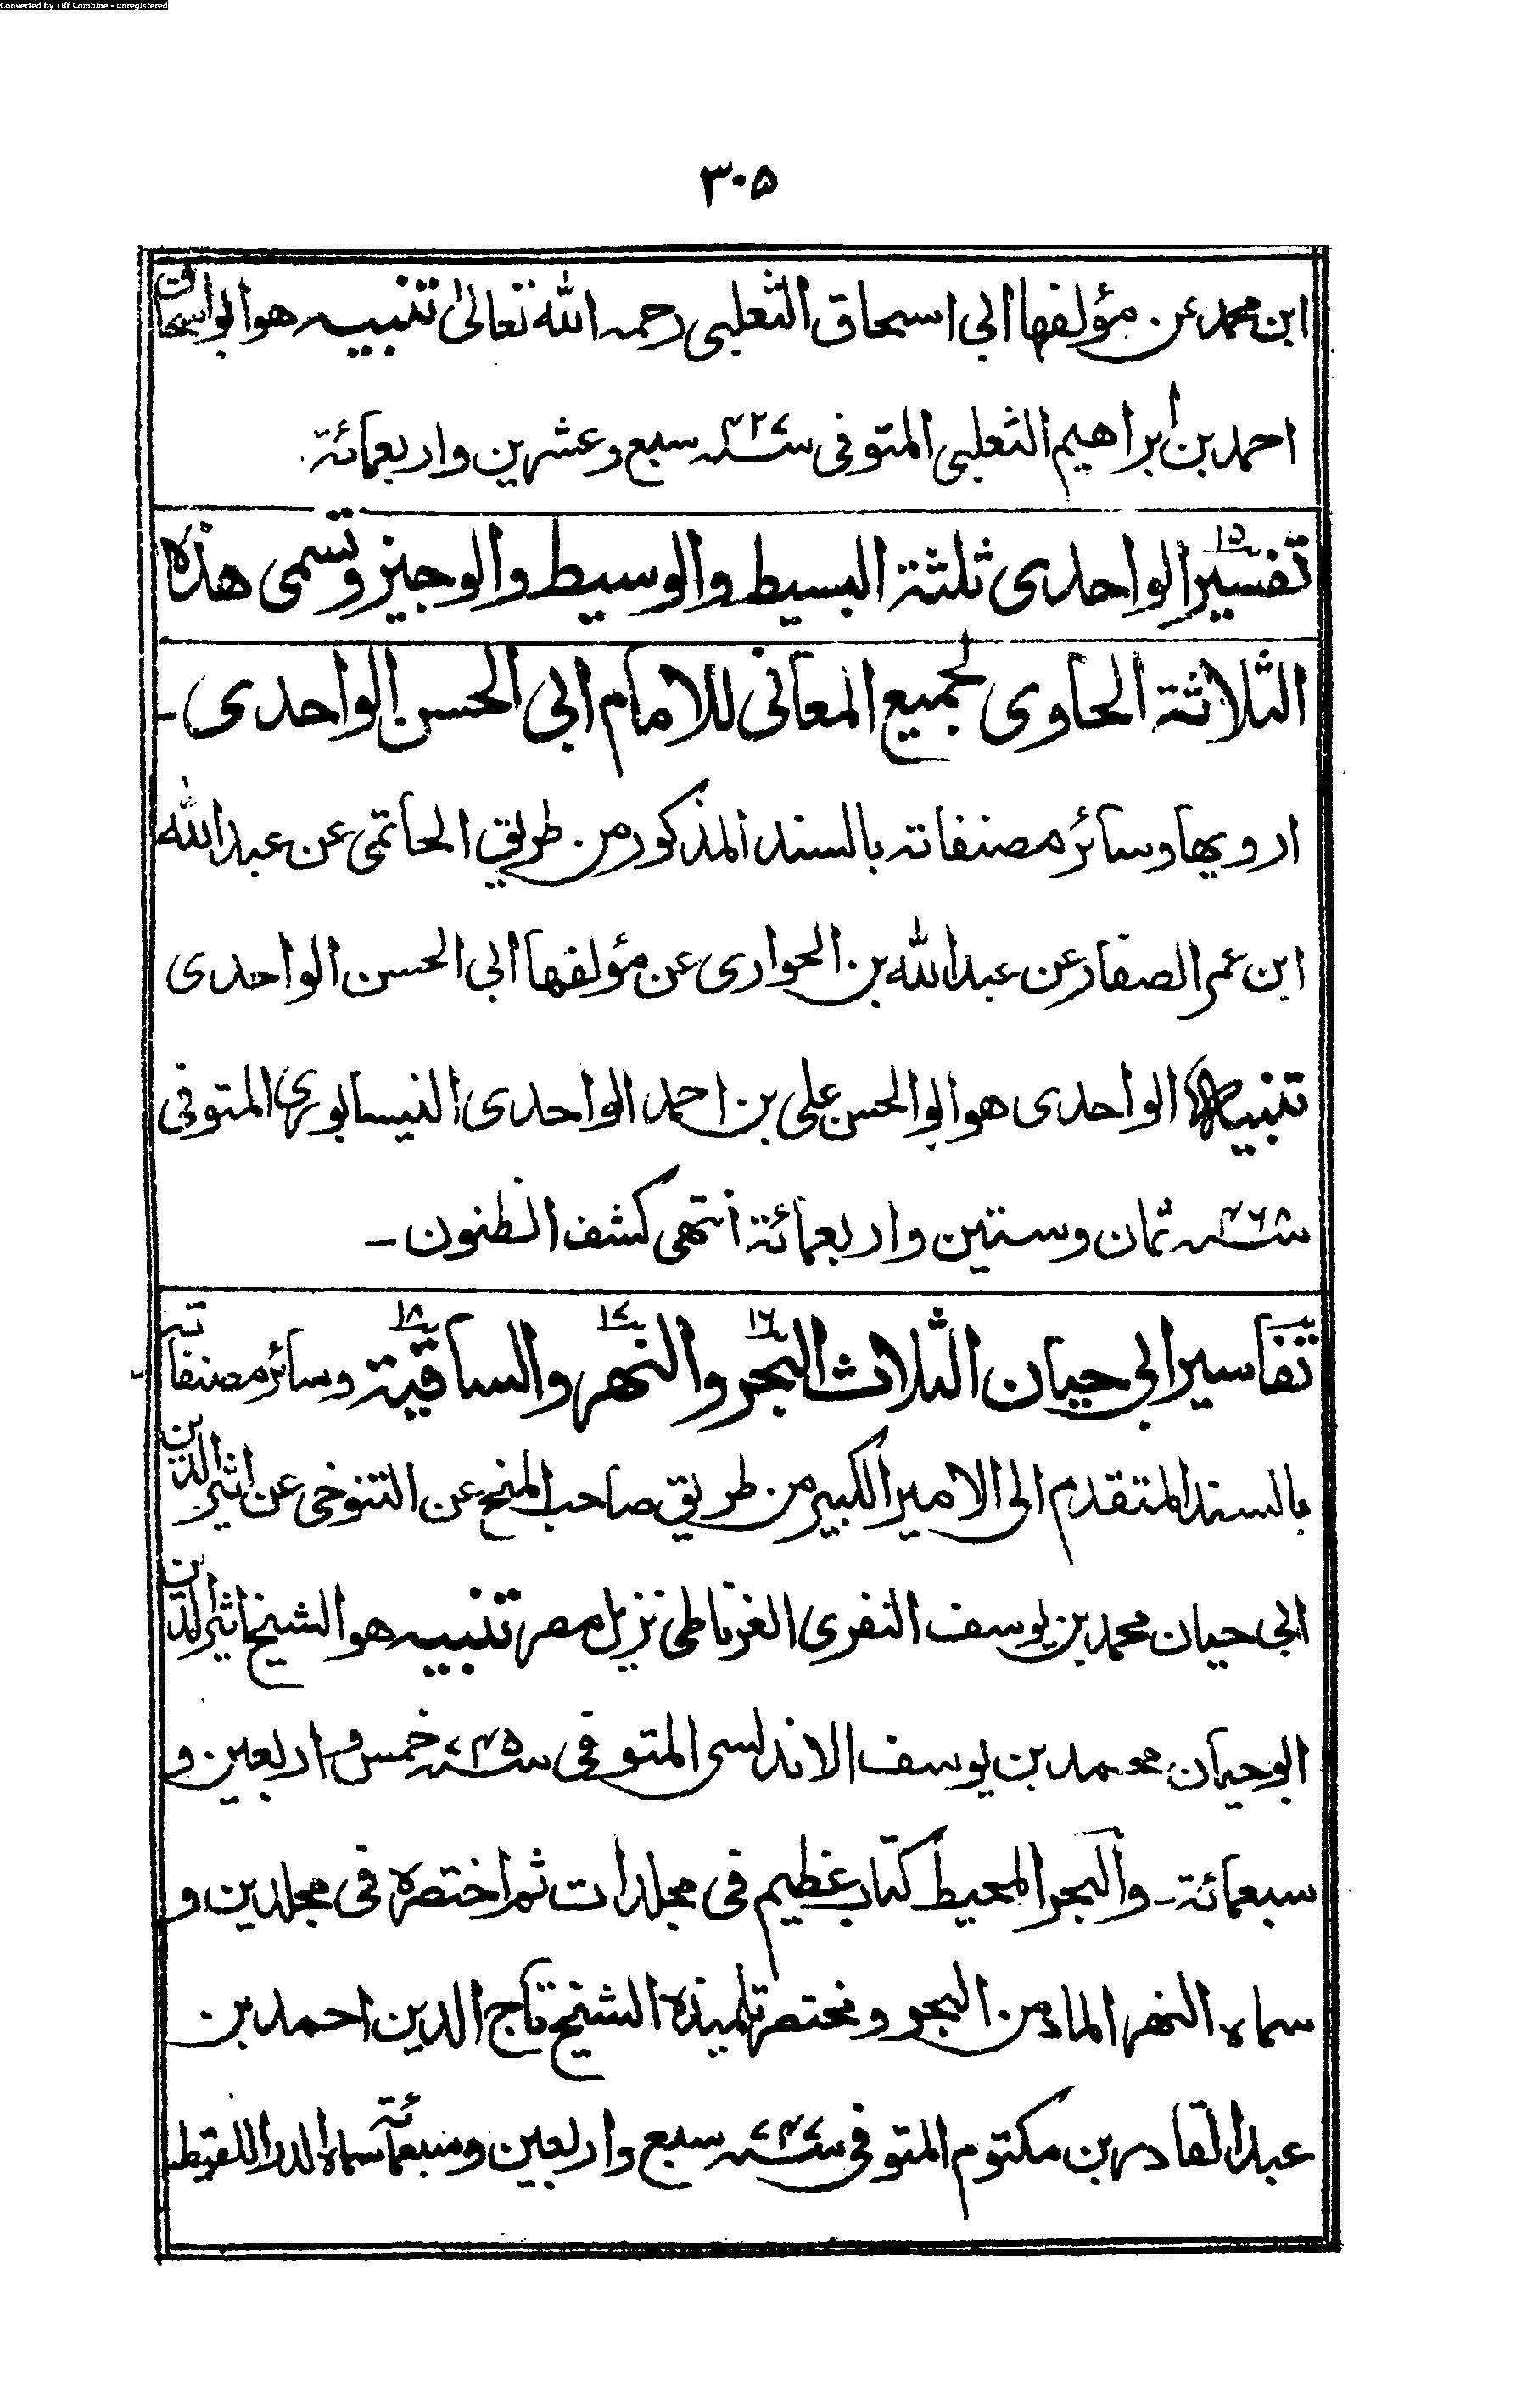 Converted by Tiff Combine - unregistered
۳۰۵
ابن محمد عن مؤلفها ابی اسحاق الثعلبی رحمہ اللّٰہ تعالیٰ تنبیہ ھو ابو اسحاق
احمد بن ابراھیم الثعلبی المتوفی ۴۲۷ سنہ سبع وعشرین واربعمائۃ
تفسیر الواحدی ۱۵ ثلثۃ البسیط والوسیط والوجیز وتسمی ھذہ
الثلاثۃ الحاوی لجمیع المعانی للامام ابی الحسن الواحدی ـ
ارویھا وسائر مصنفاتہ بالسند المذکور من طریق الحاتمی عن عبداللّٰہ
ابن عمر الصفار عن عبداللّٰہ بن الحواری عن مؤلفھا ابی الحسن الواحدی
تنبیہ الواحدی ھو ابو الحسن علی بن احمد الواحدی النیسابوری المتوفی
سنہ ۴۶۸ ثمان وستین واربعمائۃ انتھی کشف الظنون ـ
تفاسیر ابی حیان الثلاث البحر ۱۶ والنھر ۱۷ والساقیۃ ۱۸ وسائر مصنفاتہ
بالسند المتقدم الی الامیر الکبیر من طریق صاحب المنح عن التنوخی عن اثیر الدین
ابی حیان محمد بن یوسف النفری الغرناطی نزیل مصر تنبیہ ھو الشیخ اثیر الدین
ابو حیان محمد بن یوسف الاندلسی المتوفی سنہ ۷۴۵ خمس واربعین و
سبعمائۃ ـ والبحر المحیط کتاب عظیم فی مجلدات ثم اختصرہ فی مجلدین و
سماہ النھر الماد من البحر ومختصر تلمیذہ الشیخ تاج الدین احمد بن
عبد القادر بن مکتوم المتوفی سنہ ۷۴۷ سبع واربعین وسبعمائۃ سماہ الدر اللقیط